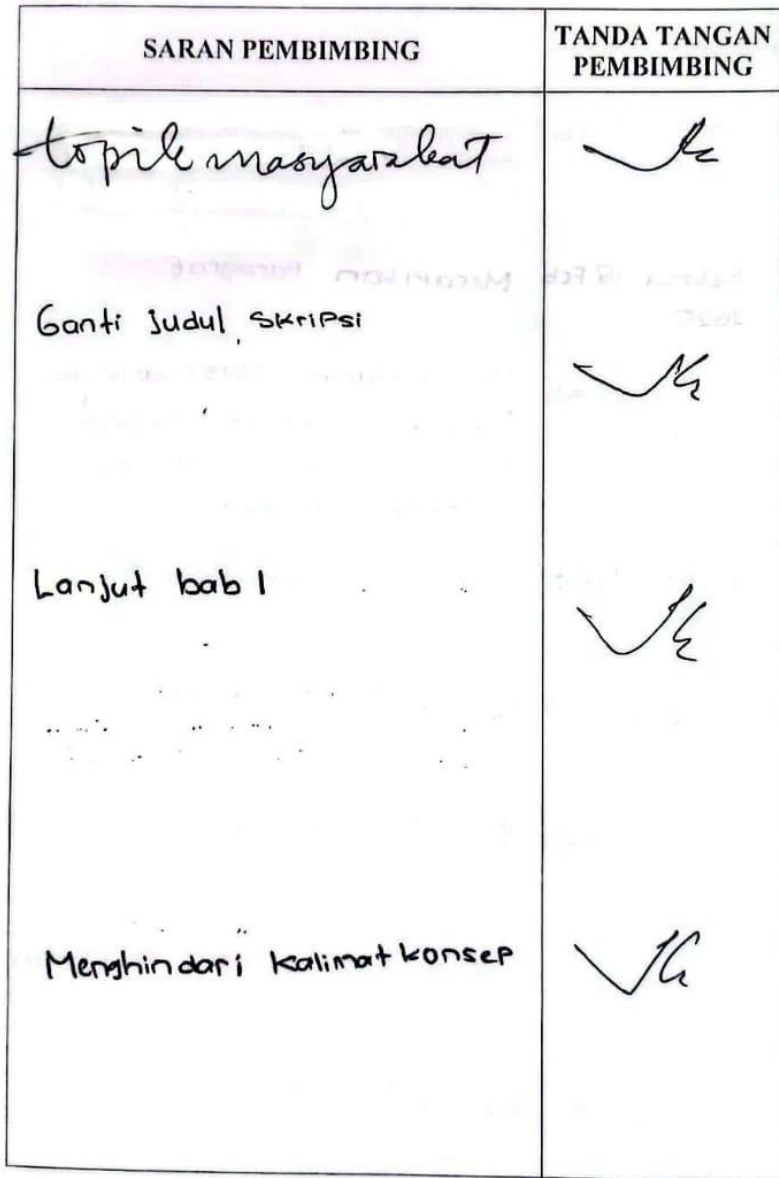 SARAN PEMBIMBING
TANDA TANGAN
PEMBIMBING
topik masyarakat
Ganti Judul Skripsi
Lanjut bab 1
Menghindari Kalimat konsep